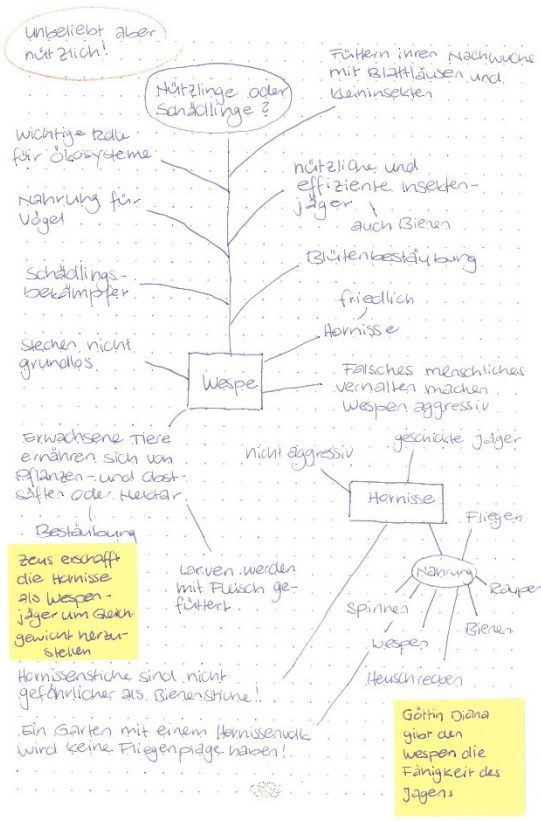 Unbeliebt aber
nützlich!
Nützlinge oder
Schädlinge?
Füttern ihren Nachwuchs
mit Blattläusen und
Kleininsekten
wichtige Rolle
für Ökosysteme
nützliche und
effiziente Insekten-
jäger
auch Bienen
Nahrung für
Vögel
Blütenbestäubung
Schädlings-
bekämpfer
friedlich
Hornisse
Stechen nicht
grundlos
Wespe
Falsches menschliches
verhalten machen
Wespen aggressiv
Erwachsene Tiere
ernähren sich von
Pflanzen- und Obst-
säften oder Nektar
Bestäubung
Larven werden
mit Fleisch ge-
füttert
nicht aggressiv
geschickte Jäger
Hornisse
Fliegen
Nahrung
Raupen
Bienen
Spinnen
Wespen
Heuschrecken
Zeus erschafft
die Hornisse
als Wespen-
jäger um Gleich-
gewicht herzu-
stellen
Hornissenstiche sind nicht
gefährlicher als Bienenstiche!
Ein Garten mit einem Hornissenvolk
wird keine Fliegenplage haben!
Göttin Diana
gibt den
Wespen die
Fähigkeit des
Jagens